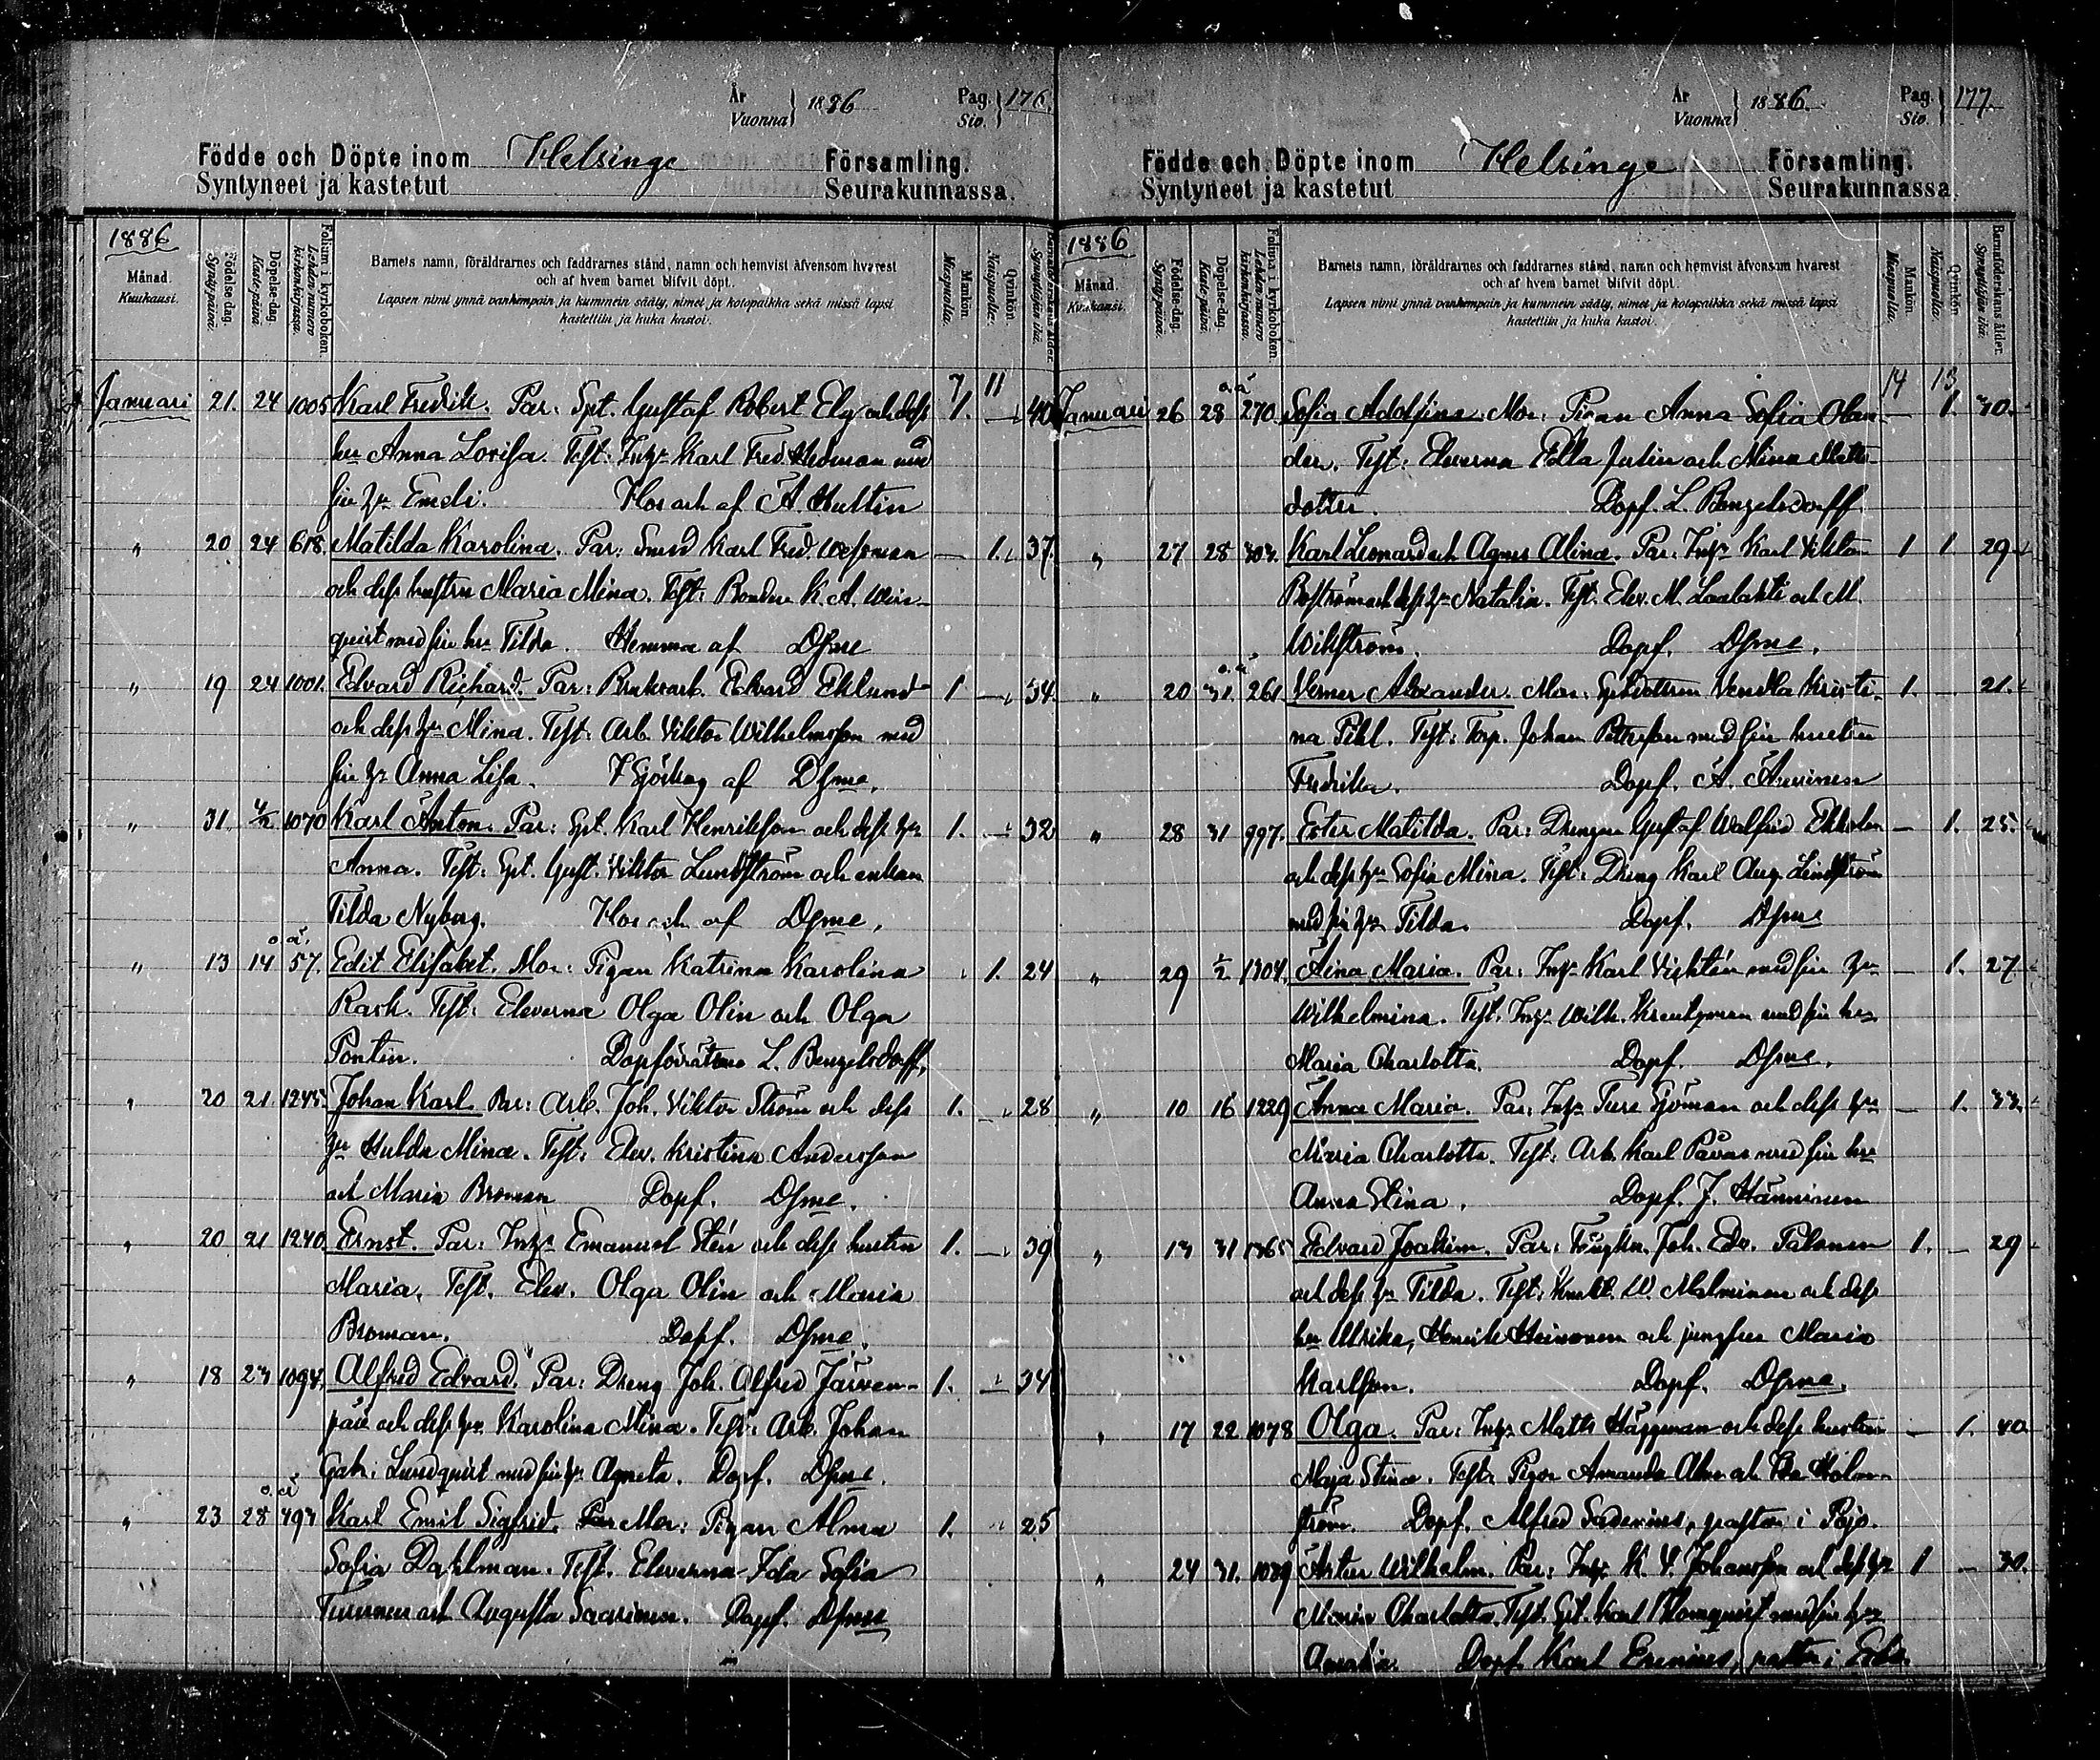 År
Vuonna } 1886
Pag.
Siv. } 176
Födde och Döpte inom Helsinge Församling.
Syntyneet ja kastetut Seurakunnassa.
1886
Månad.
Kuukausi.
Födelse-dag.
Syntym-päivä.
Döpelse-dag.
Kaste-päivä.
Folium i kyrkoboken.
Lehden numero kirkonkirjassa.
Barnets namn, föräldrarnes och faddrarnes stånd, namn och hemvist äfvensom hvarest
och af hvem barnet blifvit döpt.
Lapsen nimi ynnä vanhempain ja kummein sääty, nimet ja kotopaikka sekä missä lapsi
kastettiin ja kuka kastoi.
Mankön.
Miespuolia.
Qvinkön.
Naispuolia.
Barnaföderskans ålder.
Synnyttäjän ikä.
7 11
Januari 21. 24 1005 Karl Fredrik. Par: Spt. Gustaf Robert Elg och dess 1. — 40
hu Anna Lovisa. Test: Inhs Karl Fred. Hedman med
sin hu Emeli. Hos och af A. Hultin
" 20 24 618. Matilda Karolina. Par: Smed Karl Fred. Wessman — 1. 37.
och dess hustru Maria Mina. Test: Bonden K. A. Wein-
quist med sin hu Tilda. Hemma af Dsme
" 19 24 1001. Edvard Richard. Par: Bruksarb. Edvard Eklund 1 — 34.
och dess hu Mina. Test: Arb. Viktor Wilhelmsson med
sin hu Anna Lisa. I Sjöskog af Dsme.
" 31. 4/2 1070 Karl Anton. Par: Spt. Karl Henriksson och dess hu 1. — 32
Anna. Test: Spt. Gust. Viktor Lundström och enkan
Tilda Nyberg. Hos och af Dsme.
o. ä.
" 13 14 57. Edit Elisabet. Mor: Pigan Katrina Karolina 1. 24
Rask. Test: Eleverna Olga Olin och Olga
Pontin. Dopförrättare L. Bengelsdorff.
" 20 21 1245 Johan Karl. Par: Arb. Joh. Viktor Ström och dess 1. 28
hu Hulda Mina. Test: Elev. Kristina Andersson
och Maria Broman Dopf. Dsme.
" 20 21 1240 Ernst. Par: Inhs Emanuel Stén och dess hustru 1. — 39
Maria. Test. Elev. Olga Olin och Maria
Broman. Dopf. Dsme.
" 18 23 1094. Alfred Edvard. Par: Dreng Joh. Alfred Järven- 1. — 34
pää och dess hu Karolina Mina. Test: Arb. Johan
Gabr. Lundquist med sin hu Agneta. Dopf. Dsme.
o. ä
" 23 28 493 Karl Emil Sigfrid. Par Mor: Pigan Alma 1. 25
Sofia Dahlman. Test. Eleverna Ida Sofia
Turunen och Augusta Saarinen. Dopf. Dsme
År
Vuonna } 1886.
Pag.
Siv. } 177.
Födde och Döpte inom Helsinge Församling.
Syntyneet ja kastetut Seurakunnassa.
1886
Månad.
Kuukausi.
Födelse-dag.
Syntym-päivä.
Döpelse-dag.
Kaste-päivä.
Folium i kyrkoboken.
Lehden numero kirkonkirjassa.
Barnets namn, föräldrarnes och faddrarnes stånd, namn och hemvist äfvensom hvarest
och af hvem barnet blifvit döpt.
Lapsen nimi ynnä vanhempain ja kummein sääty, nimet ja kotopaikka sekä missä lapsi
kastettiin ja kuka kastoi.
Mankön.
Miespuolia.
Qvinkön.
Naispuolia.
Barnaföderskans ålder.
Synnyttäjän ikä.
14 13
o. ä
Januari 26 28 270. Sofia Adolfina. Mor: Pigan Anna Sofia Olan- — 1. 30.
der. Test: Eleverna Edla Julin och Mina Matts-
dotter. Dopf. L. Bengelsdorff.
" 27 28 303. Karl Leonard och Agnes Alina. Par: Inhs Karl Viktor 1 1 29
Boström och dess hu Natalia. Test. Elev. M. Laalahti och M.
Wikström. Dopf. Dsme.
o. ä
" 20 31. 261 Verner Alexander. Mor: Sptdottern Vendla Kristi- 1. — 21.
na Pihl. Test: Torp. Johan Pettersson med sin hustru
Fredrika. Dopf. A. Auvinen
" 28 31 997. Ester Matilda. Par: Drengen Gustaf Walfrid Ekholm — 1. 25.
och dess hu Sofia Mina. Test: Dreng Karl Aug. Lindström
med sin hu Tilda. Dopf. Dsme
" 29 1/2 1304. Aina Maria. Par: Inhs Karl Vichtén med sin hu — 1. 27
Wilhelmina. Test. Inhs Wilh. med sin hu
Maria Charlotta. Dopf. Dsme.
" 10 16 1229 Anna Maria. Par: Inhs Ture Sjöman och dess hu — 1. 33.
Maria Charlotta. Test: Arb. Karl med sin hu
Anna Stina. Dopf. J. Hänninen
" 13 31 1365 Edvard Joakim. Par: Joh. Edv. Talonen 1. — 29
och dess hu Tilda. Test: W. Malminen och dess
hu Ulrika, Henrik Heinonen och jungfru Maria
Karlsson. Dopf. Dsme.
" 17 22 1078 Olga. Par: Inhs Matts Häggman och dess hustru — 1. 40
Maja Stina. Test. Pigor Amanda Alm och Ida Holm-
ström. Dopf. Alfred Sadenius, pastor i Pojo.
" 24 31. 1089 Artur Wilhelm. Par: Inhs K. V. Johansson och dess hu 1 — 30.
Maria Charlotta. Test. Spt. Karl Blomquist med sin hu
Amalia. Dopf. Karl pastor i Esbo.